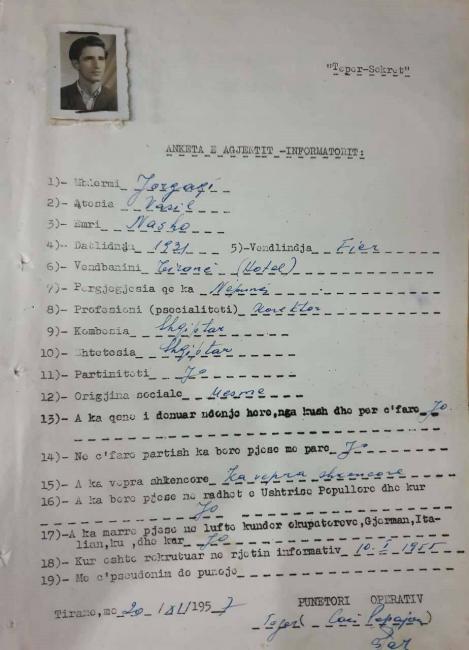 "Teper-Sekret"
ANKETA E AGJENTIT -INFORMATORIT:
1)- Mbiermi Jorgaqi
2)- Atesia Vasil
3)- Emri Nasho
4)- Datlidnja 1931 5)-Vendlindja Fier
6)- Vendbanimi Tiranë (Hotel)
7)- Pergjegjesia qe ka Nepunës
8)- Profesioni (psecialiteti) Korektor
9)- Kombesia Shqiptar
10)- Shtetesia Shqiptar
11)- Partiniteti Jo
12)- Origjina sociale Mesme
13)- A ka qene i denuar ndonje here,nga kush dhe per c'fare Jo
14)- Ne c'fare partish ka bere pjese me pare Jo
15)- A ka vepra shkencore Ka vepra shkencore
16)- A ka bere pjese ne radhet e Ushtrise Popullore dhe kur
Jo
17)-A ka marre pjese ne lufte kunder okupatoreve,Gjerman,Ita-
lian,ku ,dhe kur Jo
18)- Kur eshte rekrutuar ne rjetin informativ 10-I-1955
19)- Me c'pseudonim do punoje
Tirane,me 20/XI/1957 PUNETORI OPERATIV